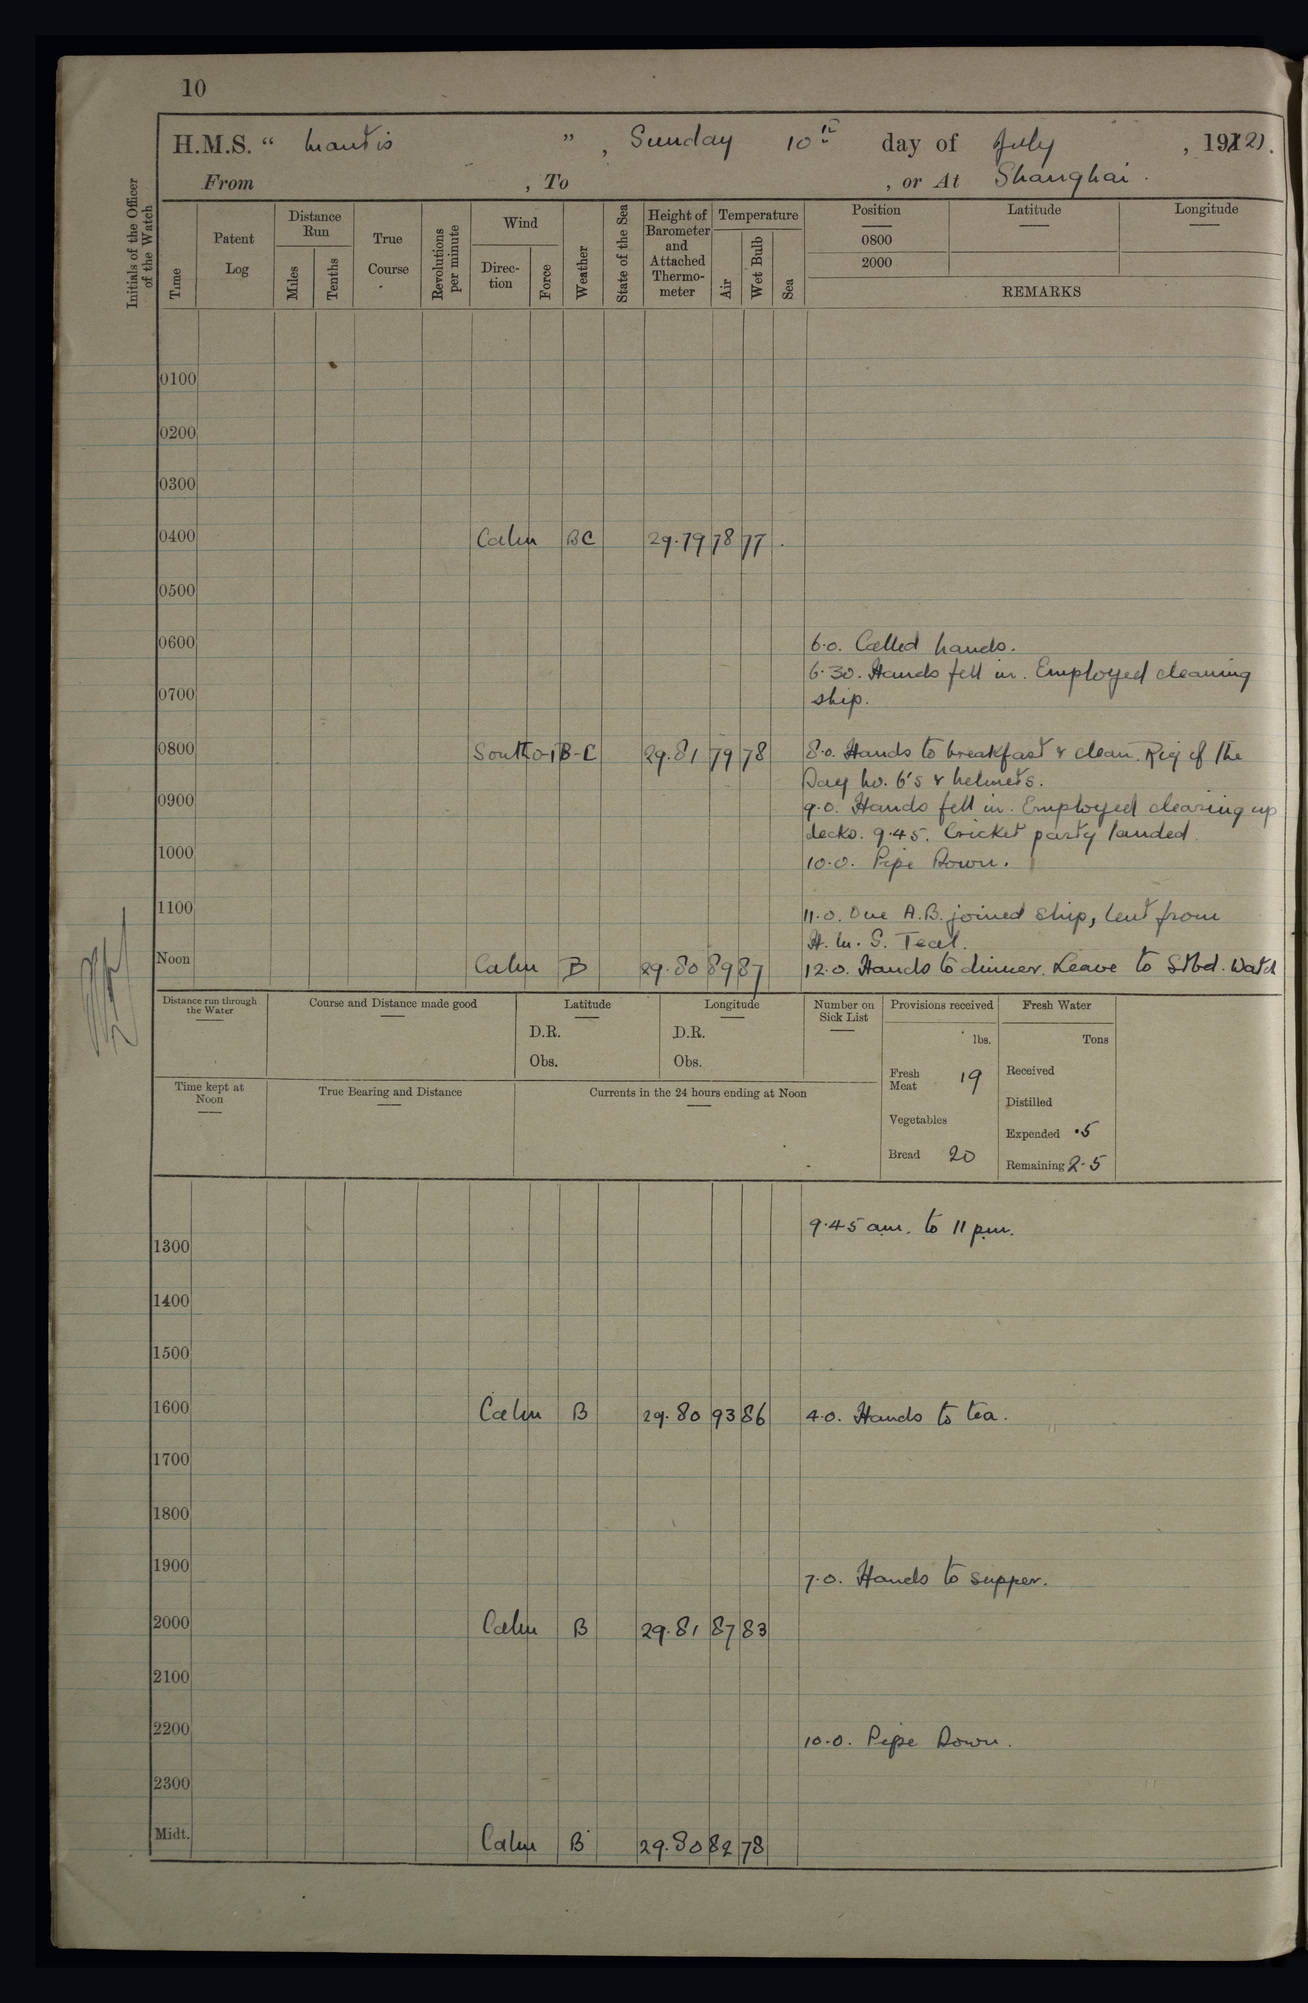 10
H.M.S. “ Mantis ” , Sunday 10th day of July , 1921.
From , To , or At Shanghai .
Initials of the Officer of the Watch
Time
Patent Log
Distance Run
Miles
Tenths
True Course
Revolutions per minute
Wind
Direc-tion
Force
Weather
State of the Sea
Height of Barometer and Attached Thermo-meter
Temperature
Air
Wet Bulb
Sea
Position
Latitude
Longitude
0800
2000
REMARKS
0100
0200
0300
0400 Calm BC 29.79 78 77
0500
0600 6.0. Called hands.
6.30. Hands fell in. Employed cleaning
0700 ship.
0800 South 0-1 B-C 29.81 79 78 8.0. Hands to breakfast & clean. Rig of the
Day No. 6's & helmets.
0900 9.0. Hands fell in. Employed clearing up
decks. 9.45. Cricket party landed.
1000 10.0. Pipe Down.
1100 11.0. One A.B. joined ship, lent from
H.M.S. Teal.
Noon Calm B 29.80 89 87 12.0. Hands to dinner. Leave to Stbd. Watch
Distance run through the Water
Course and Distance made good
Latitude
D.R.
Obs.
Longitude
D.R.
Obs.
Number on Sick List
Provisions received
lbs.
Fresh Meat 19
Vegetables
Bread 20
Fresh Water
Tons
Received
Distilled
Expended .5
Remaining 2.5
Time kept at Noon
True Bearing and Distance
Currents in the 24 hours ending at Noon
9.45 am. to 11 pm.
1300
1400
1500
1600 Calm B 29.80 93 86 4.0. Hands to tea.
1700
1800
1900 7.0. Hands to supper.
2000 Calm B 29.81 87 83
2100
2200 10.0. Pipe Down.
2300
Midt. Calm B 29.80 82 78